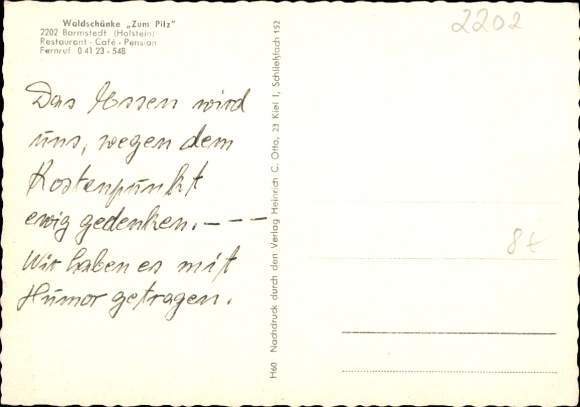 Waldschänke „Zum Pilz"
2202 Barmstedt (Holstein)
Restaurant - Café - Pension
Fernruf 0 41 23 - 548
2202
Das Essen wird
uns, wegen dem
Kostenpunkt
ewig gedenken. – – –
Wir haben es mit
Humor getragen.
H60 Nachdruck durch den Verlag Heinrich C. Otto, 23 Kiel 1, Schließfach 152